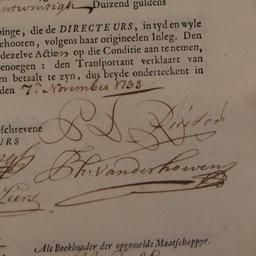 Duizend guldens
pinge, die de DIRECTEURS, in tyd en wyle
behooren, volgens haar origineelen Inleg. Den
dezelve Actien op die Conditie aan te nemen,
genoegen: den Transportant verklaart van
en betaalt te zyn, dus beyde onderteekent in
den 7en November 1738
schrevene
URS
Ph. vanderhoeven
Als Boekhouder der opgemelde Maatschappye.